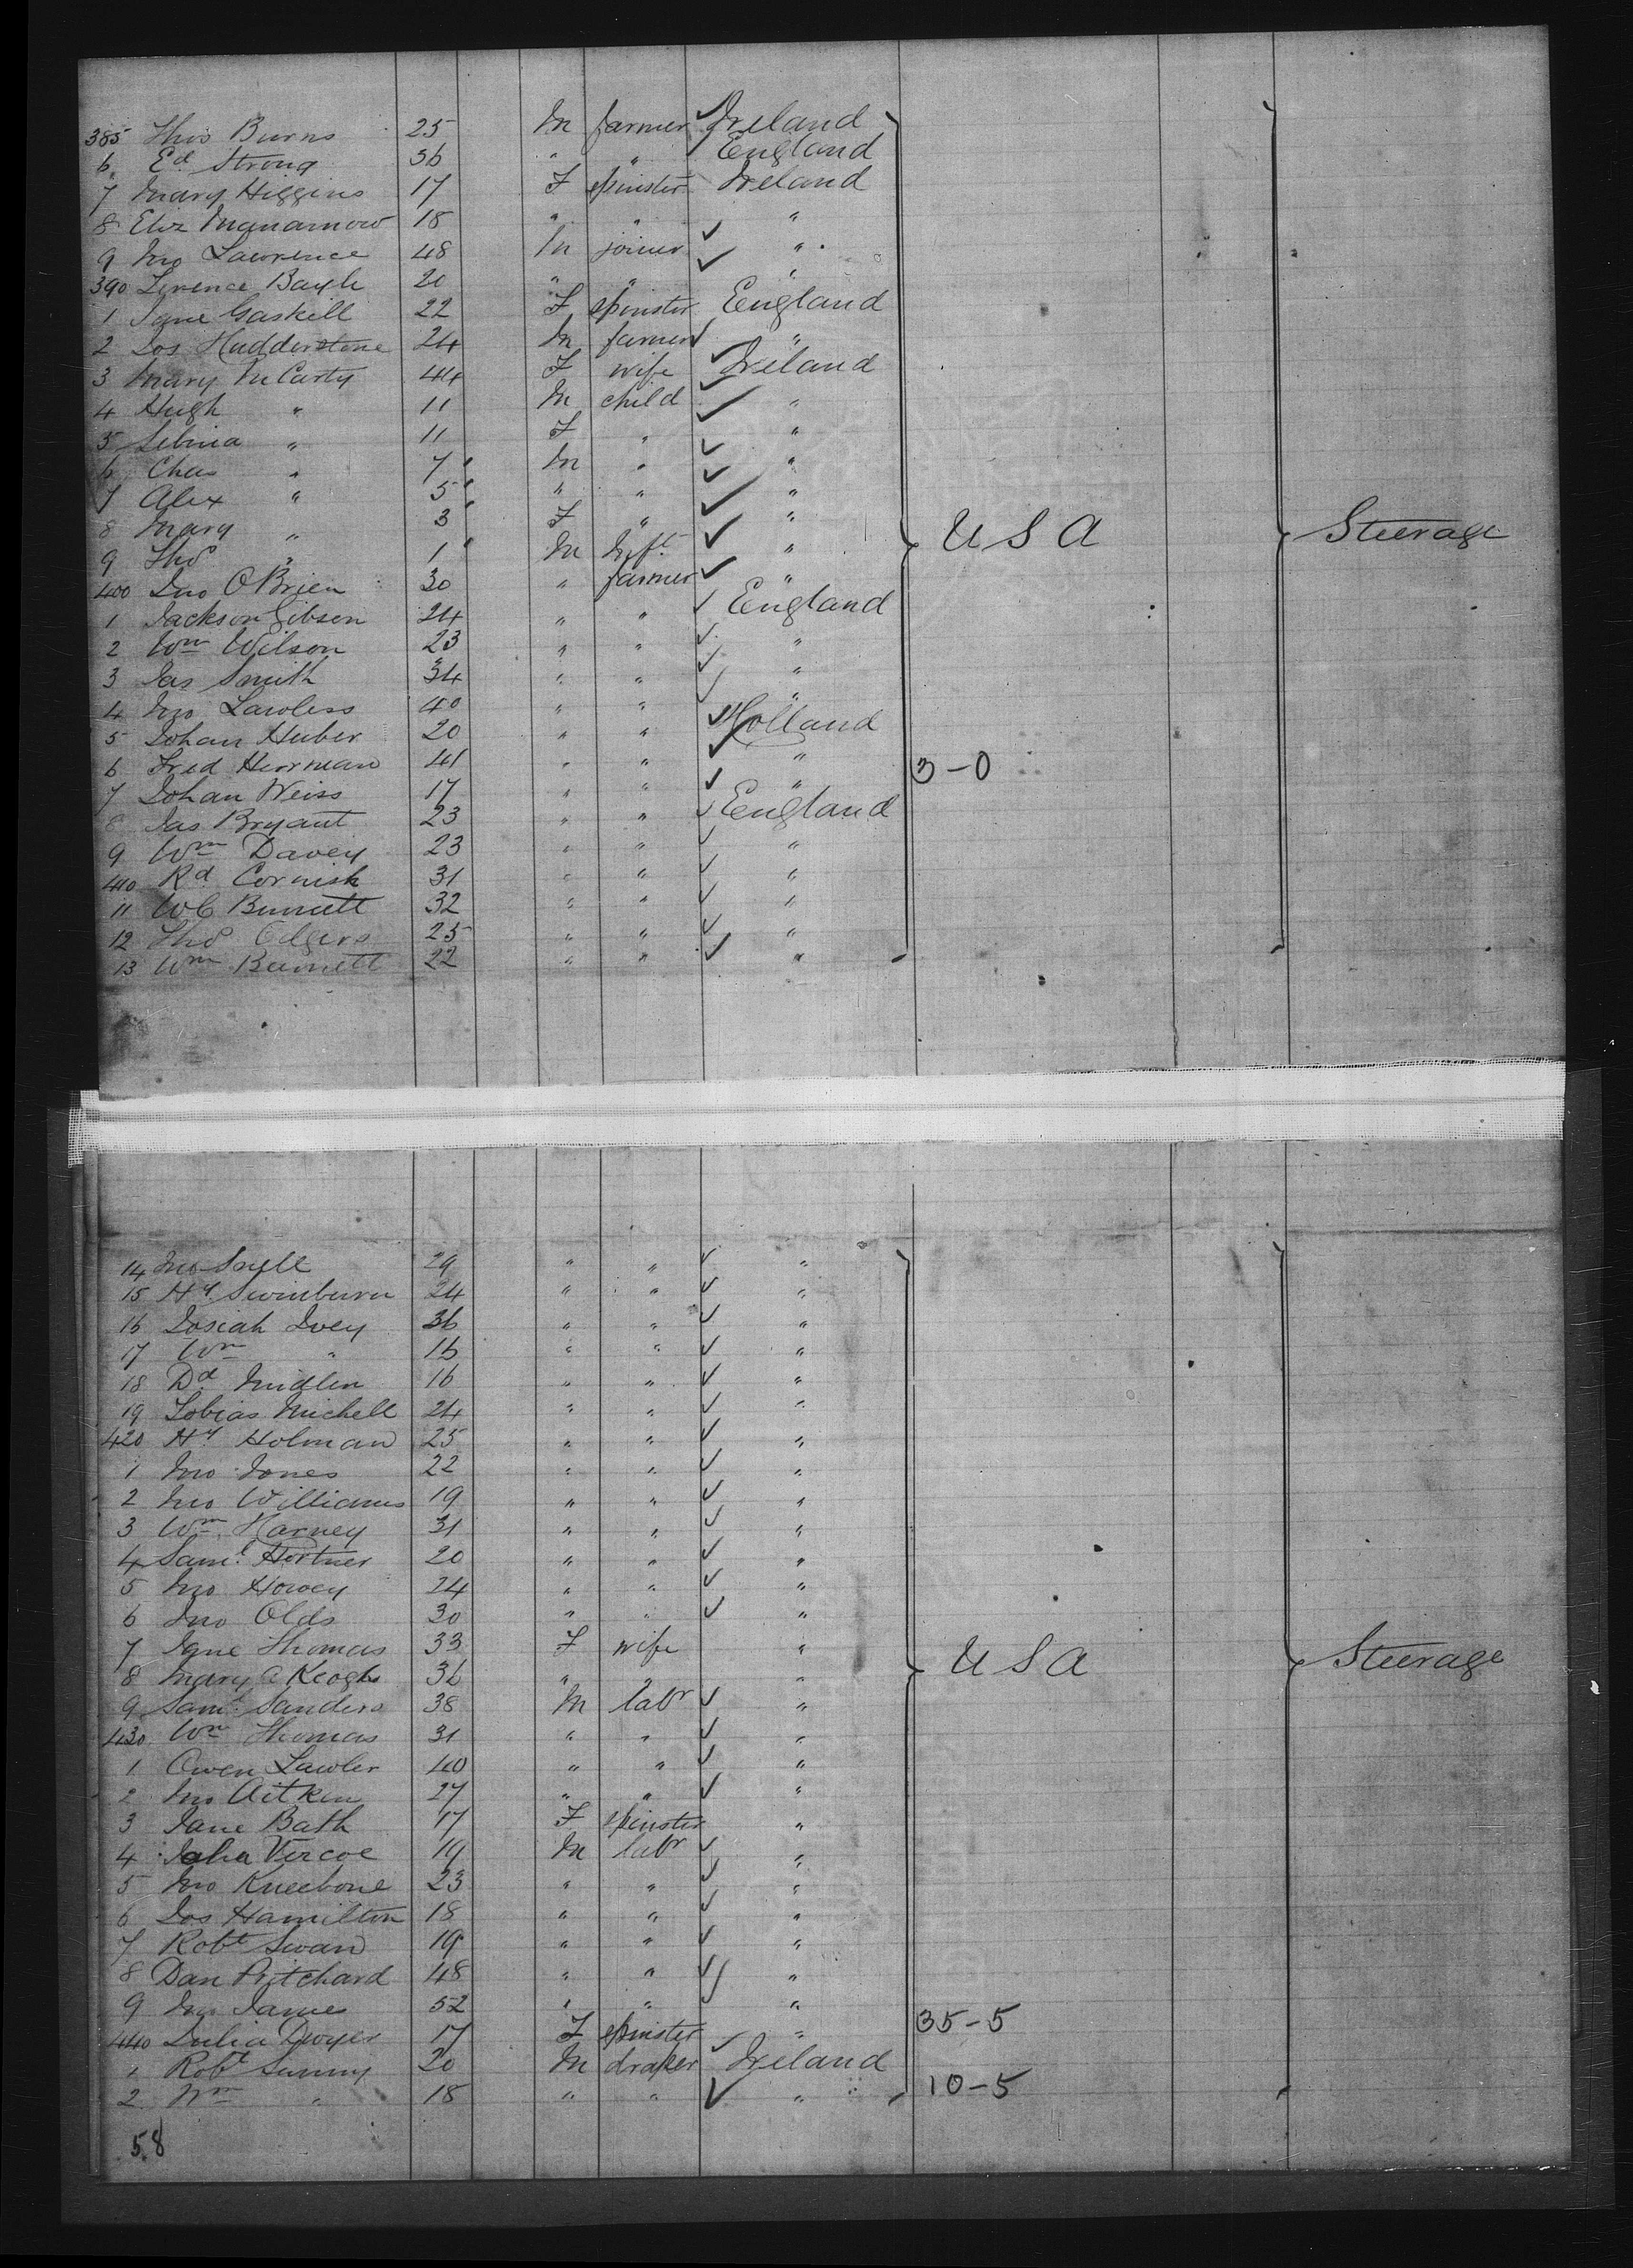 385 Thos Burns 25 M farmer Ireland
6 Ed Strong 36 " " England
7 Mary Higgins 17 F spinster Ireland
8 Eliz 18 " " "
9 Jno Lawrence 48 M joiner "
390 Terence Bayle 20 " " "
1 Jane Gaskill 22 F spinster England
2 Jos Hudderstone 24 M farmer "
3 Mary McCarty 44 F wife Ireland
4 Hugh " 11 M child "
5 Selina " 11 F " "
6 Chas " 7 M " "
7 Alex " 5 " " "
8 Mary " 3 F " "
9 Thos " 1 M Inft "
USA Steerage
400 Jno O'Brien 30 " farmer "
1 Jackson Gibson 24 " " England
2 Wm Wilson 23 " " "
3 Jas Smith 34 " " "
4 Jno Lawless 40 " " "
5 Johan Huber 20 " " Holland
6 Fred Herrman 41 " " " 3-0
7 Johan Weiss 17 " " "
8 Jas Bryant 23 " " England
9 Wm Davey 23 " " "
410 Rd Cornish 31 " " "
11 WC Bennett 32 " " "
12 Thos Odgers 25 " " "
13 Wm Bennett 22 " " "
14 Jno Snell 29 " " "
15 Hy Swinburn 24 " " "
16 Josiah Ivey 36 " " "
17 Wm " 16 " " "
18 Dd Midlen 16 " " "
19 Tobias Michell 24 " " "
420 Hy Holman 25 " " "
1 Jno Jones 22 " " "
2 Jno Williams 19 " " "
3 Wm Harvey 31 " " "
4 Saml Hortner 20 " " "
5 Jno Howey 24 " " "
6 Jno Olds 30 " " "
7 Jane Thomas 33 F wife "
8 Mary A Keogh 36 " " "
USA Steerage
9 Saml Sanders 38 M labr "
430 Wm Thomas 31 " " "
1 Owen Lawler 40 " " "
2 Jno Aitken 27 " " "
3 Jane Bath 17 F spinster "
4 John Vercoe 19 M labr "
5 Jno Kneebone 23 " " "
6 Jos Hamilton 18 " " "
7 Robt Swan 19 " " "
8 Dan Pritchard 48 " " "
9 Jno James 52 " " "
440 Julia Dwyer 17 F spinster " 35-5
1 Robt Sunny 20 M draper Ireland
2 Wm " 18 " " " 10-5
58